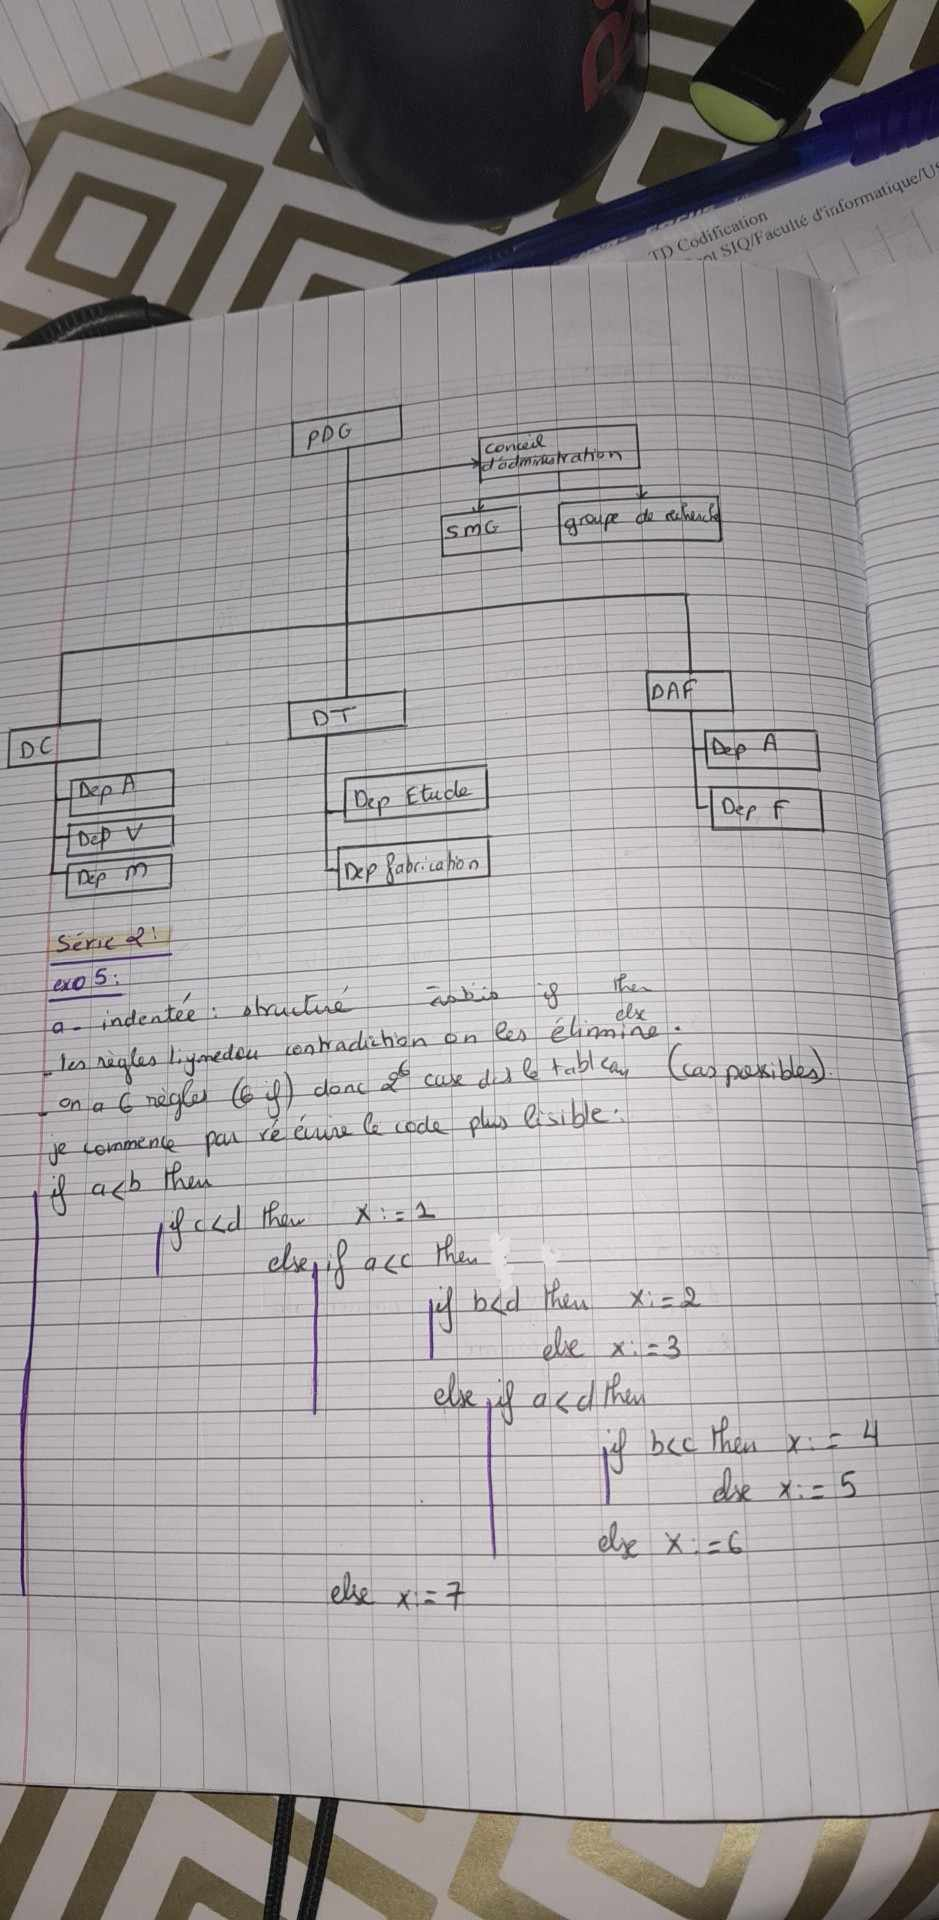 TD Codification
SIQ/Faculté d'informatique/US
PDG
conceil
d'administration
SMG
groupe de recherche
DC
DT
DAF
Dep A
Dep V
Dep M
Dep Etude
Dep fabrication
Dep A
Dep F
Série 2:
exo 5:
a- indentée: structuré if then
else
- les règles contradiction on les élimine.
- on a 6 règles (6 if) donc 2^6 case ds le tableau (cas possibles).
je commence par ré écrire le code plus lisible:
if a<b then
if c<d then x:=1
else if a<c then
if b<d then x:=2
else x:=3
else if a<d then
if b<c then x:=4
else x:=5
else x:=6
else x:=7